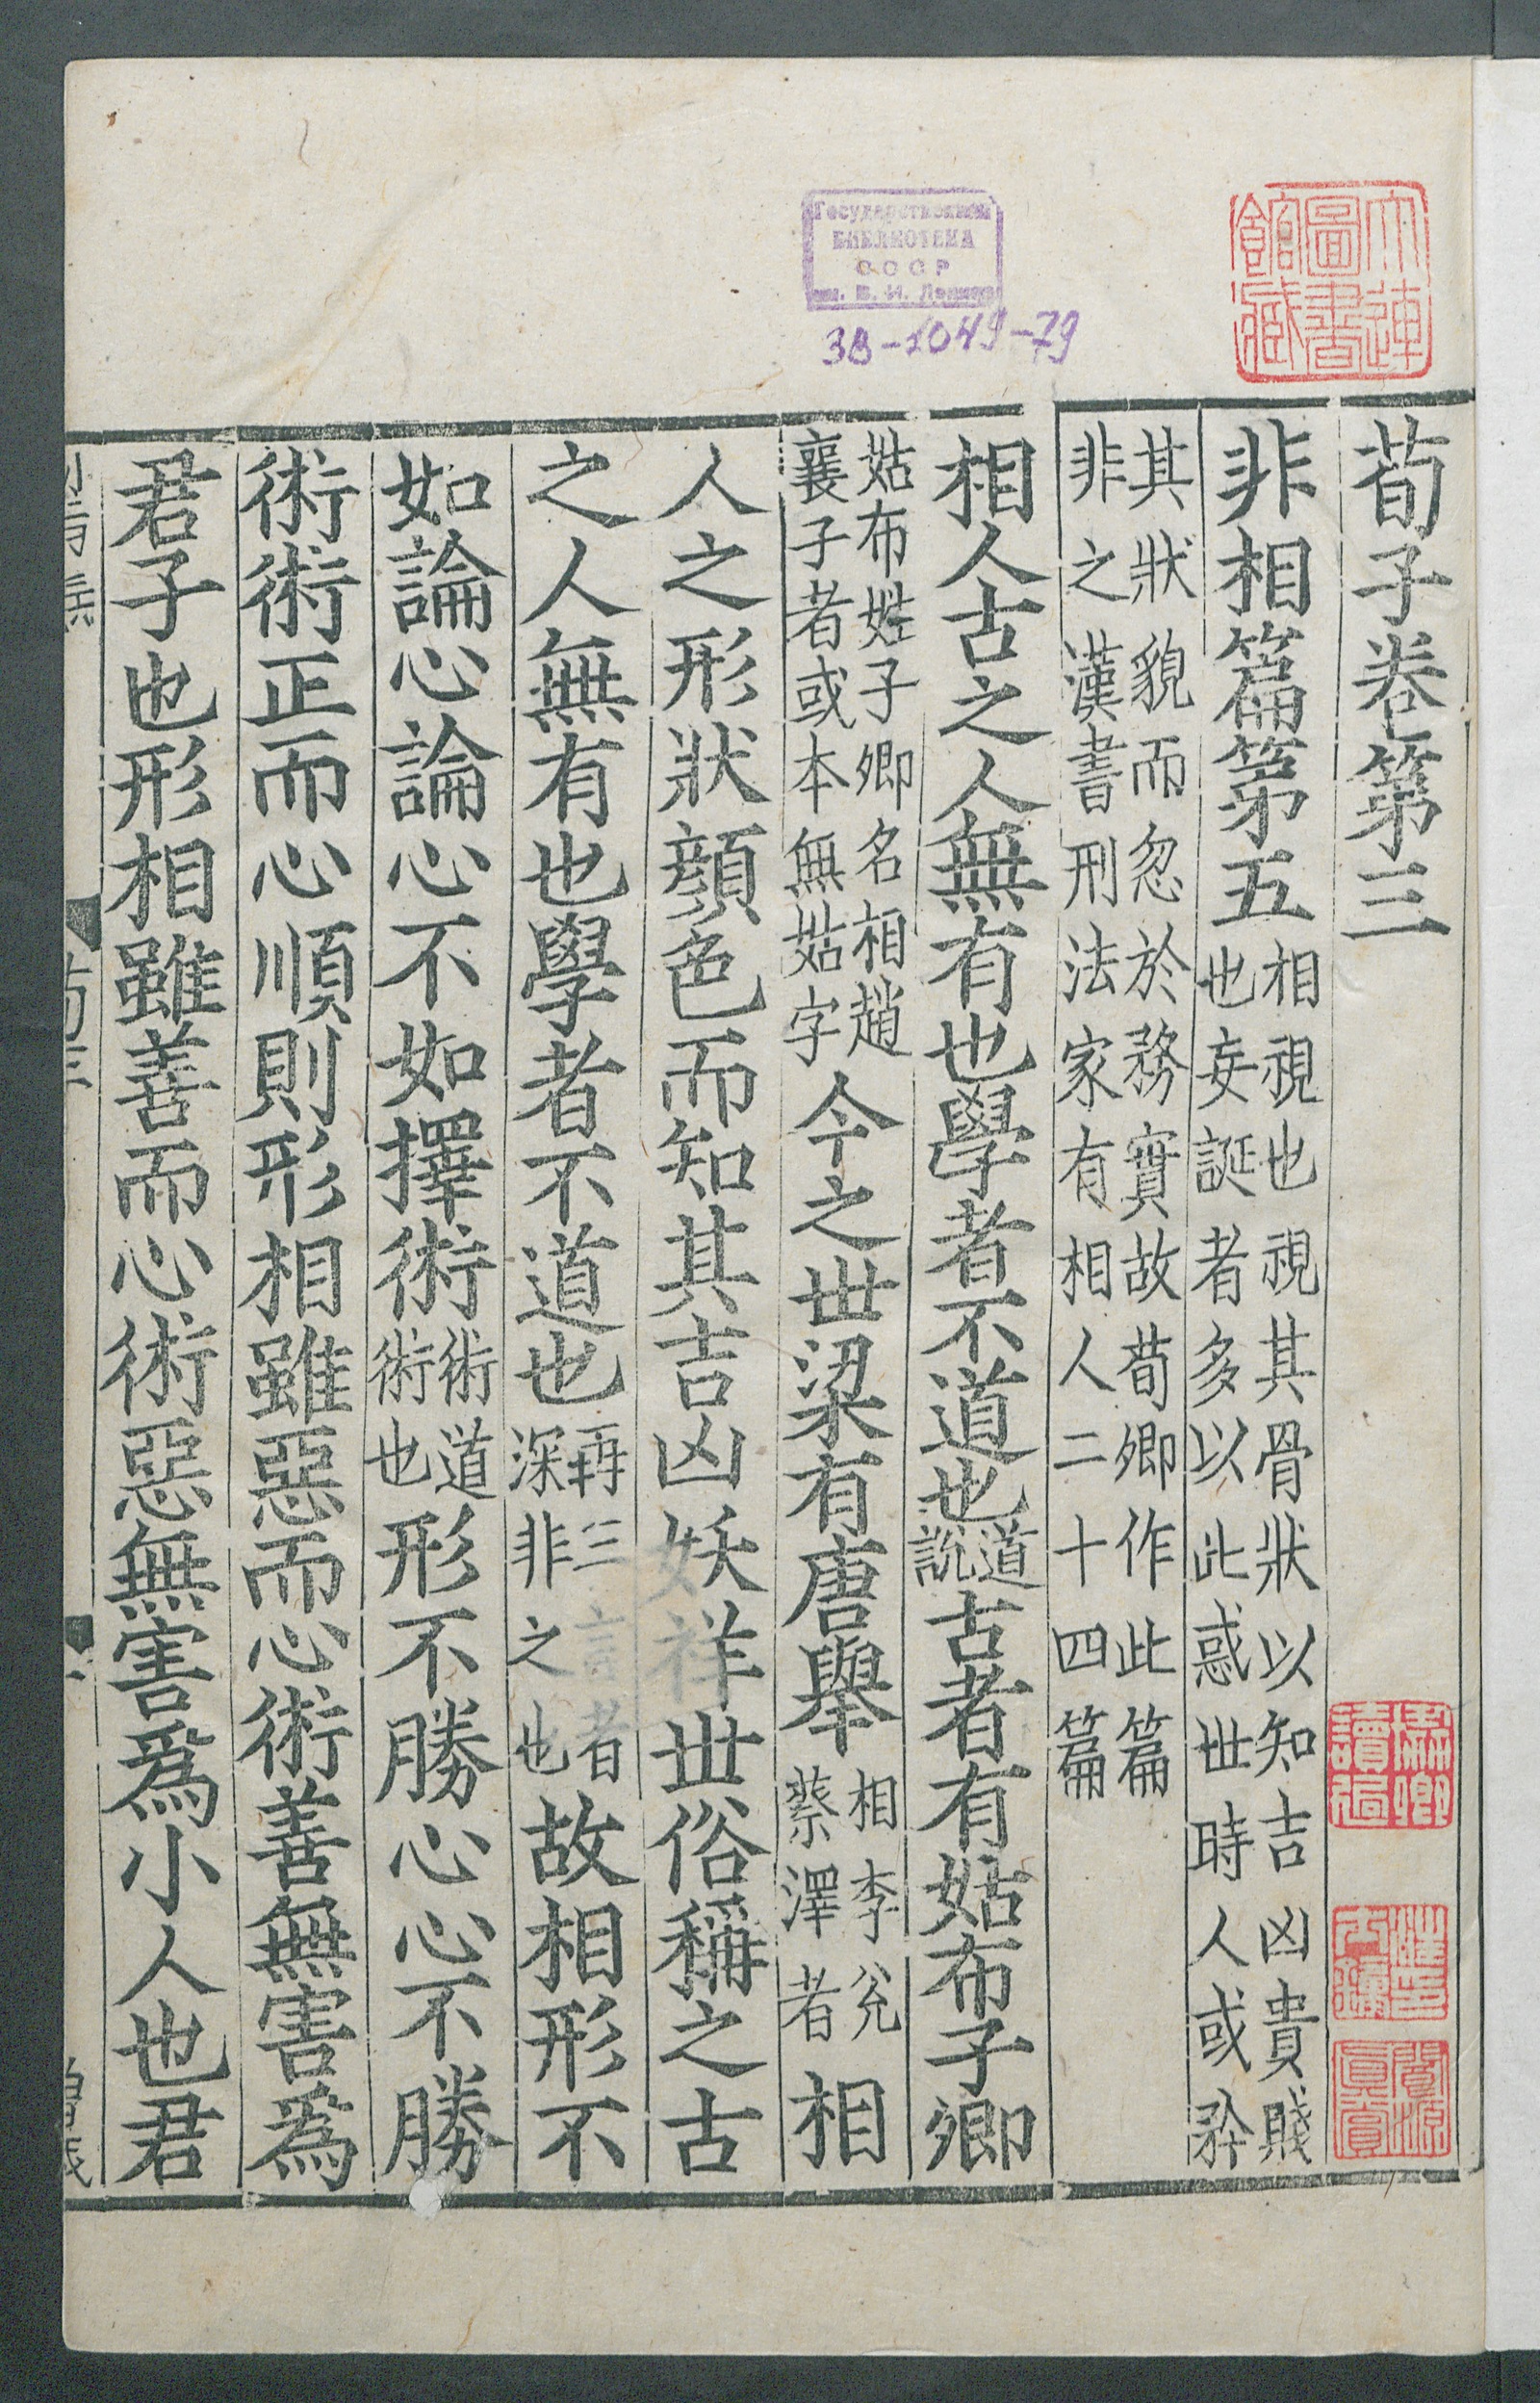 荀子卷第三
非相篇第五 相視也視其骨狀以知吉凶貴賤
也妄誕者多以此惑世時人或矜
其狀貌而忽於務實故荀卿作此篇
非之漢書刑法家有相人二十四篇
相人古之人無有也學者不道也 道
說 古者有姑布子卿
姑布姓子卿名相趙
襄子者或本無姑字 今之世梁有唐舉 相李兊
蔡澤者 相
人之形狀顏色而知其吉凶妖祥世俗稱之古
之人無有也學者不道也 再三言者
深非之也 故相形不
如論心論心不如擇術 術道
術也 形不勝心心不勝
術術正而心順則形相雖惡而心術善無害爲
君子也形相雖善而心術惡無害爲小人也君
大連
圖書
館藏
Государственная
БИБЛИОТЕКА
СССР
им. В. И. Ленина
3В-1049-79